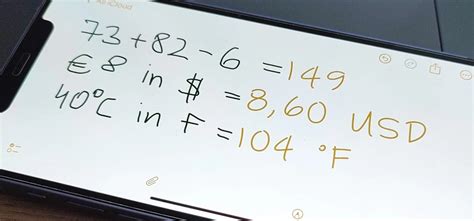 iCloud
73 + 82 - 6 = 149
€8 in $ = 8,60 USD
40°C in F = 104 °F